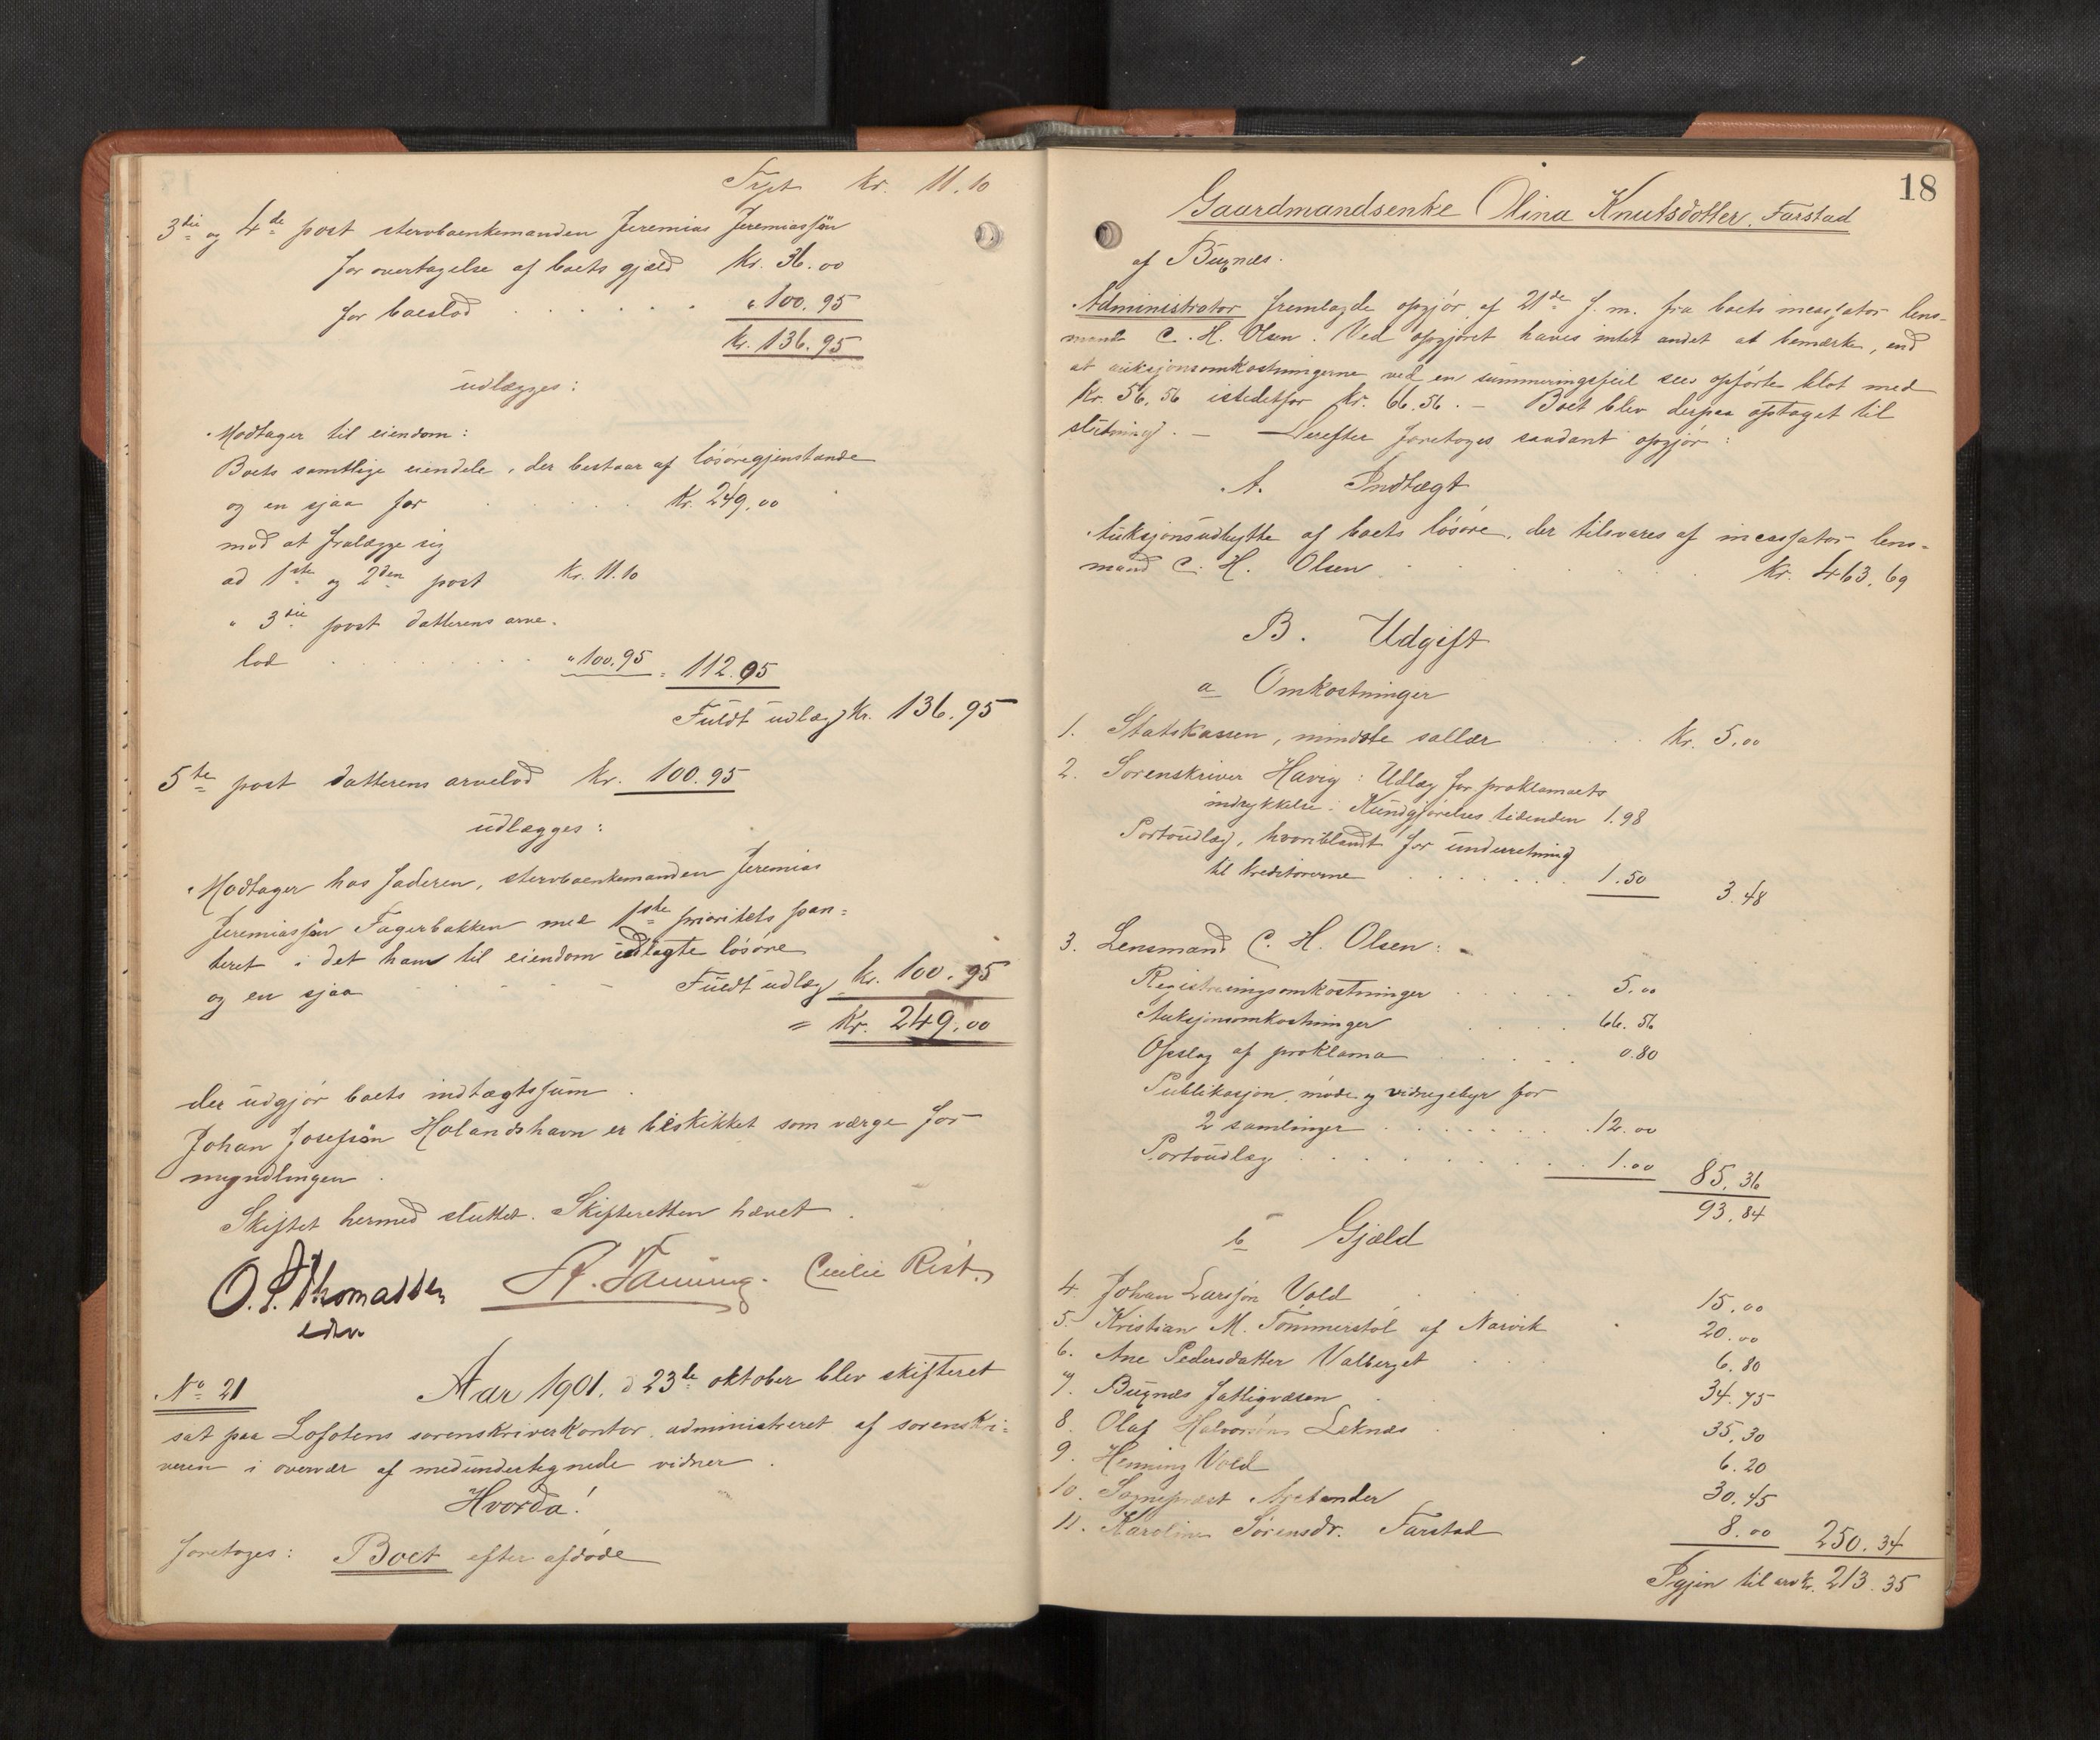 Trpt kr. 11.10
3die og 4de post stervboenkemanden Jeremias Jeremiassøn
for overtagelse af boets gjæld kr. 36.00
for boeslod . . . . . " 100.95
kr. 136.95
udlægges:
Modtager til eiendom:
Boets samtlige eiendele, der bestaar af løsøregjenstande
og en sjaa for . . . . . kr. 249.00
mod at fralægge sig
ad 1ste og 2den post kr. 11.10
" 3die post datterens arve-
lod . . . . . " 100.95 = 112.05
Fuldt udlæg kr. 136.95
5te post datterens arvelod kr. 100.95
udlægges:
Modtager hos faderen, stervboenkemanden Jeremias
Jeremiassøn Fagerbakken med 1ste prioritets pan-
teret i det ham til eiendom udlagte løsøre
og en sjaa . . . . Fuldt udlæg kr. 100.95
= kr. 249.00
der udgjør boets indtægtssum.
Johan Josefsøn Holandshavn er beskikket som værge for
myndlingen.
Skiftet hermed sluttet. Skifteretten hævet.
O. S. Thomassen Cecilie Rist.
edv.
No 21 Aar 1901, d 23de oktober blev skifteret
sat paa Lofotens sorenskriverkontor, administreret af sorenskri-
veren i overvær af medundertegnede vidner.
Hvorda!
foretoges: Boet efter afdøde
18
Gaardmandsenke Olina Knutsdotter, Farstad
af Buxnæs.
Administrator fremlagde opgjør af 21de f. m. fra boets incassator lens-
mand C. H. Olsen. Ved opgjøret haves intet andet at bemærke, end
at auksjonsomkostningerne ved en summeringsfeil sees opførte blot med
kr. 56.56 istedetfor kr. 66.56. - Boet blev derpaa optaget til
slutning. - Derefter foretoges saadant opgjør:
A. Indtægt
Auksjonsudbytte af boets løsøre, der tilsvares af incassator lens-
mand C. H. Olsen . . . . . kr. 463.69
B. Udgift
a Omkostninger
1. Statskassen, mindste sallær . . . kr. 5.00
2. Sorenskriver Havig: Udlæg for proklamaets
indrykkelse i Kundgjørelses tidenden 1.98
Portoudlæg, hvoriblandt for underretning
til kreditorerne . . . . . 1.50 3.48
3. Lensmand C. H. Olsen:
Registreringsomkostninger . . . . 5.00
Auksjonsomkostninger . . . . 66.56
Opslag af proklama . . . . 0.80
Publikasjon, møde og vidnegebyr for
2 samlinger . . . . . 12.00
Portoudlæg . . . . . 1.00 85.36
93.84
b Gjæld
4. Johan Larssøn Vold . . . 15.00
5. Kristian M. Tømmerstøl af Narvik . 20.00
6. Ane Pedersdatter Valberget . . . 6.80
7. Buxnæs fattigvæsen . 34.75
8. Olaf Halvorsøns Leknæs . . 35.30
9. Henning Vold 6.20
10. Sogneprest Aretander 30.45
11. Karoline Sørensdr. Farstad 8.00 250.34
Igjen til arv kr. 213.35